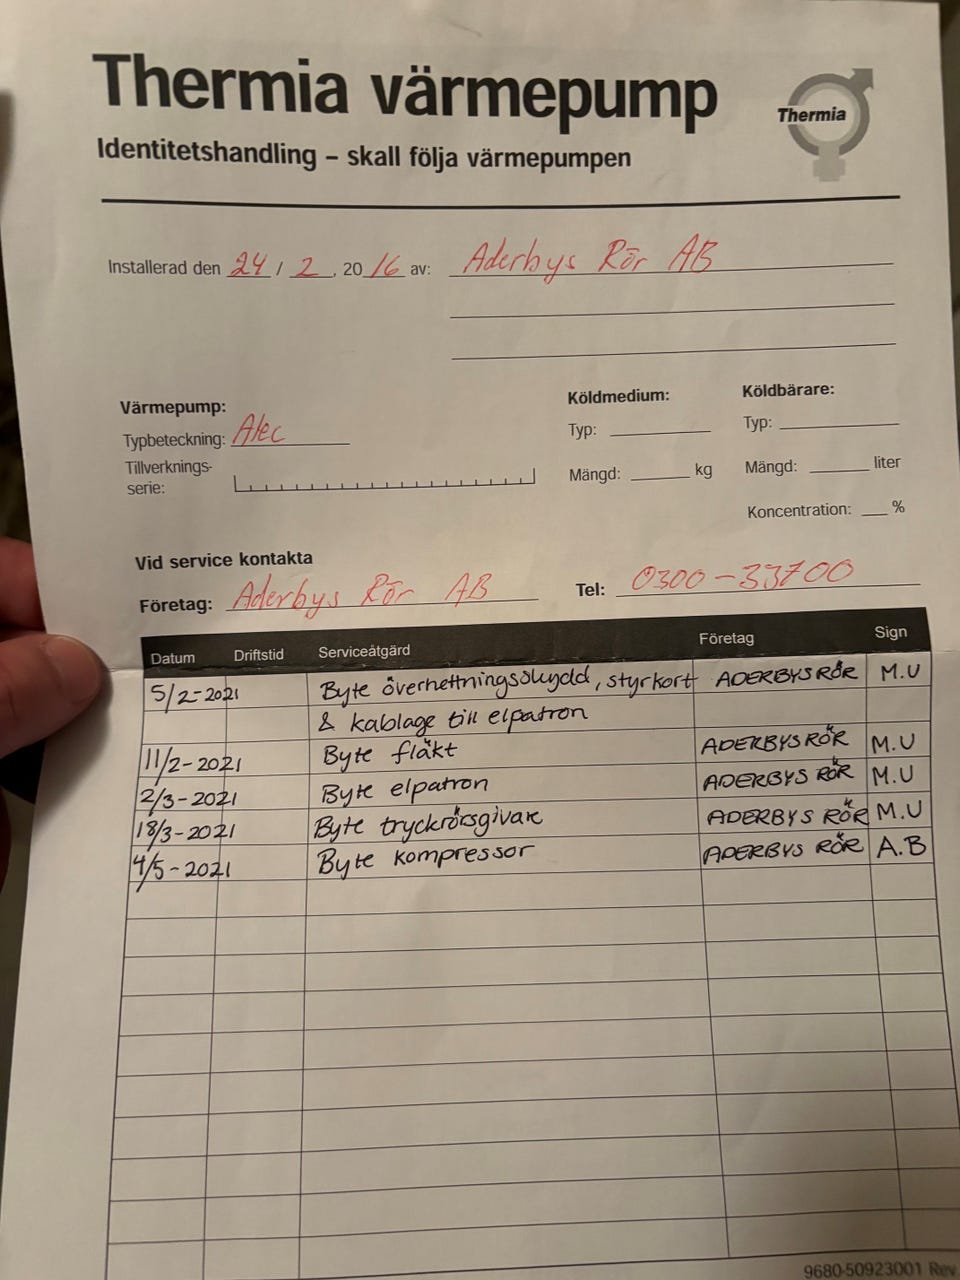 Thermia värmepump
Thermia
Identitetshandling – skall följa värmepumpen
Installerad den 24 / 2 , 20 16 av: Aderbys Rör AB
Värmepump:
Köldmedium:
Köldbärare:
Typbeteckning: Atec
Typ:
Typ:
Tillverknings-
serie:
Mängd: kg
Mängd: liter
Koncentration: %
Vid service kontakta
Företag: Aderbys Rör AB Tel: 0300-33700
Datum Driftstid Serviceåtgärd Företag Sign
5/2-2021 Byte överhettningsskydd, styrkort ADERBYS RÖR M.U
& kablage till elpatron
11/2-2021 Byte fläkt ADERBYS RÖR M.U
2/3-2021 Byte elpatron ADERBYS RÖR M.U
18/3-2021 Byte tryckrörsgivare ADERBYS RÖR M.U
4/5-2021 Byte kompressor ADERBYS RÖR A.B
9680-50923001 Rev